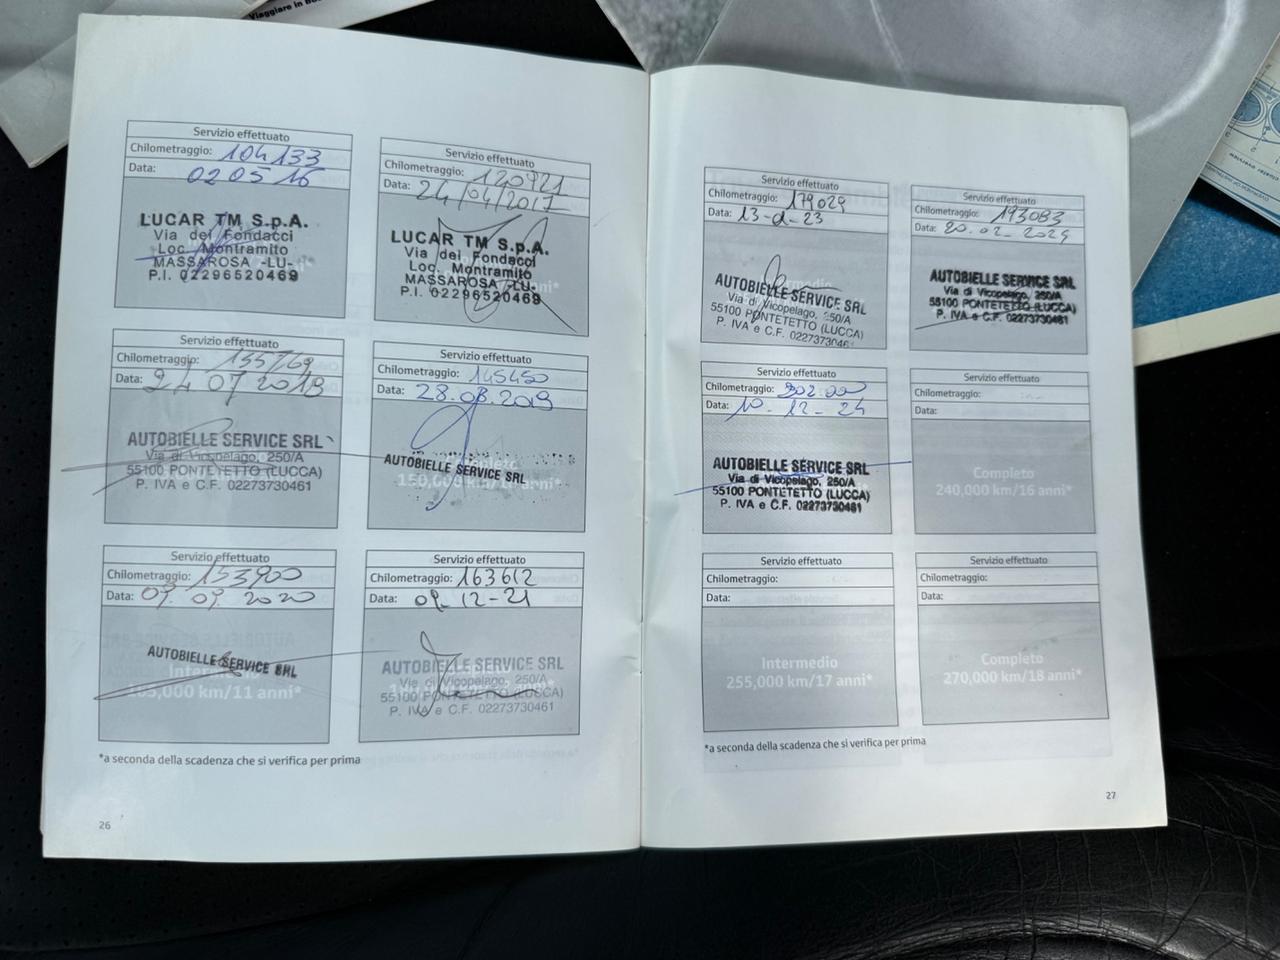 Viaggiare in
Servizio effettuato
Chilometraggio: 104133
Data: 02 05 16
LUCAR TM S.p.A.
Via dei Fondacci
Loc. Montramito
MASSAROSA -LU-
P.I. 02296520469
Servizio effettuato
Chilometraggio: 120921
Data: 24/04/2017
LUCAR TM S.p.A.
Via dei Fondacci
Loc. Montramito
MASSAROSA -LU-
P.I. 02296520469
Servizio effettuato
Chilometraggio: 135769
Data: 24 07 2018
AUTOBIELLE SERVICE SRL
Via di Vicopelago, 250/A
55100 PONTETETTO (LUCCA)
P. IVA e C.F. 02273730461
Servizio effettuato
Chilometraggio: 145450
Data: 28.08.2019
AUTOBIELLE SERVICE SRL
150,000 km/10 anni*
Servizio effettuato
Chilometraggio: 153900
Data: 09. 2020
AUTOBIELLE SERVICE SRL
Intermedio
165,000 km/11 anni*
Servizio effettuato
Chilometraggio: 163612
Data: 12-21
AUTOBIELLE SERVICE SRL
Via di Vicopelago, 250/A
55100 PONTETETTO (LUCCA)
P. IVA e C.F. 02273730461
*a seconda della scadenza che si verifica per prima
26
Servizio effettuato
Chilometraggio: 179029
Data: 13-
AUTOBIELLE SERVICE SRL
Via di Vicopelago, 250/A
55100 PONTETETTO (LUCCA)
P. IVA e C.F. 0227373046
Servizio effettuato
Chilometraggio: 193083
Data: 20.02.2024
AUTOBIELLE SERVICE SRL
Via di Vicopelago, 250/A
55100 PONTETETTO (LUCCA)
P. IVA e C.F. 02273730461
Servizio effettuato
Chilometraggio: 202.000
Data: 10-12-24
AUTOBIELLE SERVICE SRL
Via di Vicopelago, 250/A
55100 PONTETETTO (LUCCA)
P. IVA e C.F. 02273730461
Servizio effettuato
Chilometraggio:
Data:
Completo
240,000 km/16 anni*
Servizio effettuato
Chilometraggio:
Data:
Intermedio
255,000 km/17 anni*
Servizio effettuato
Chilometraggio:
Data:
Completo
270,000 km/18 anni*
*a seconda della scadenza che si verifica per prima
27